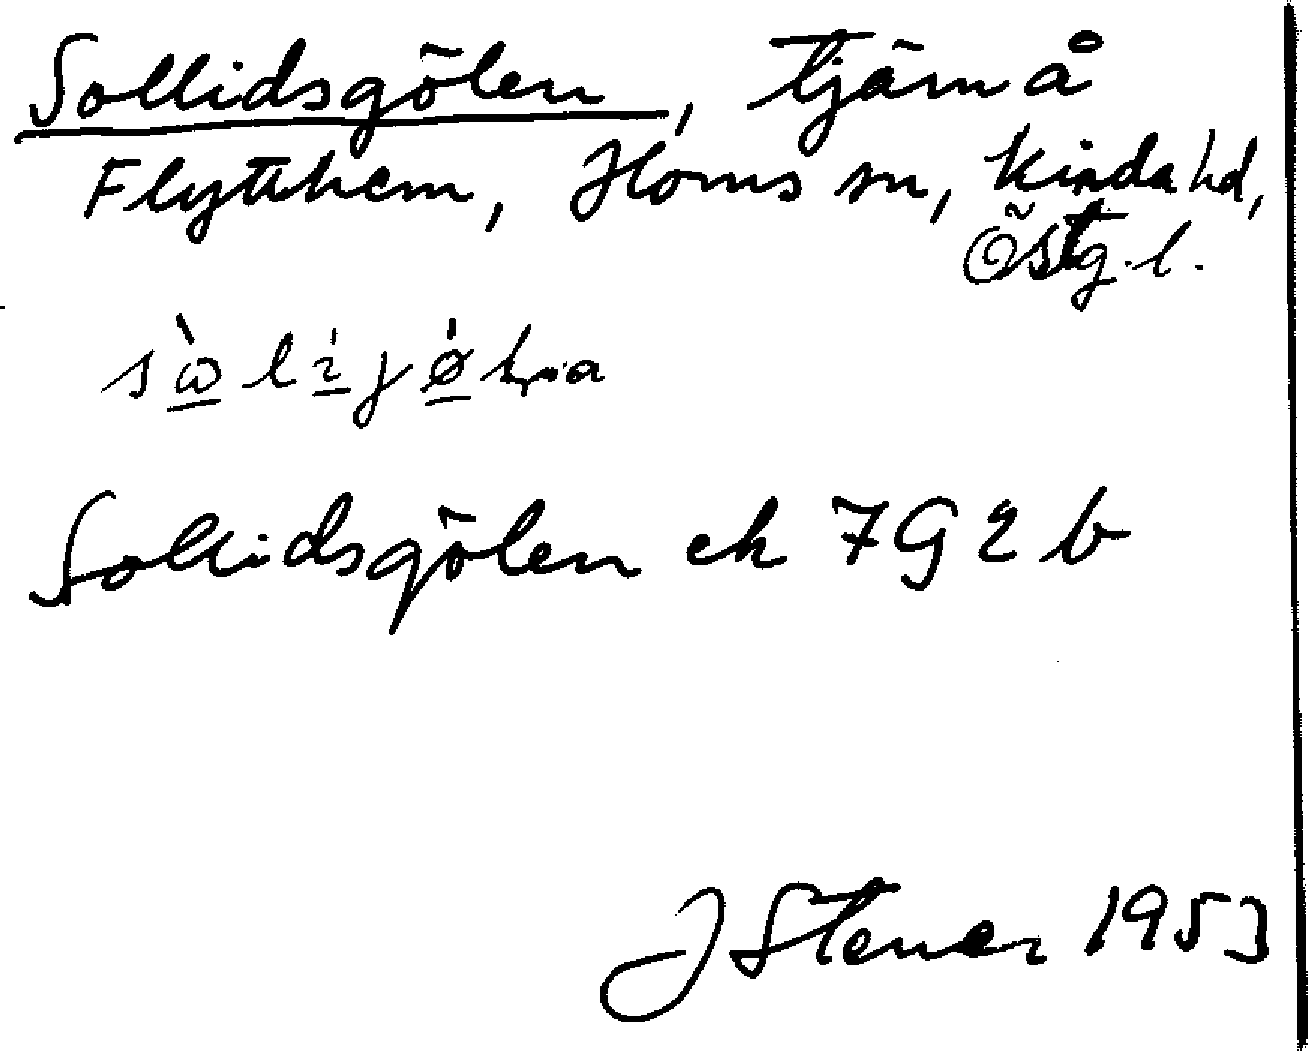 Sollidsgölen, tjärn å
Flytthem, Horns sn, Kinda hd,
Östg.l.
Sollidsgölen ek 7G2b
J Stener 1953